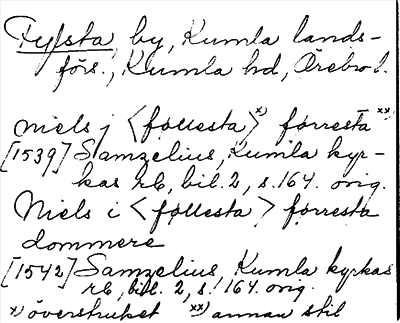 Fylsta, by, Kumla lands-
förs., Kumla hd, Örebro l.
Niels j <føllesta>x) førresta xx)
[1539] Samzelius, Kumla kyr-
kas rb, bil. 2, s. 164. orig.
Niels i <føllesta> førresta
dommere
[1542] Samzelius, Kumla kyrkas
rb, bil. 2, s. 164. orig.
x) överstruket xx) annan stil